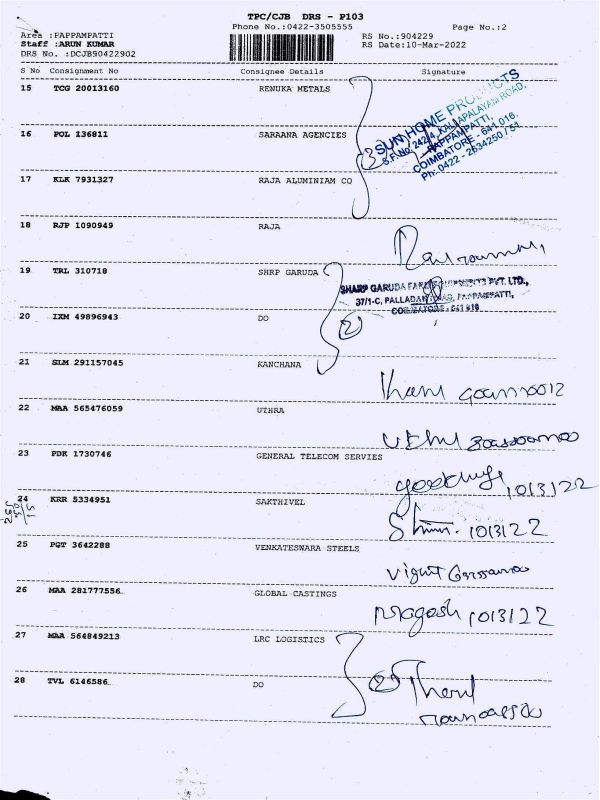 TPC/CJB DRS - P103
Phone No.:0422-3505555 Page No.:2
Area :PAPPAMPATTI RS No.:904229
Staff :ARUN KUMAR RS Date:10-Mar-2022
DRS No. :DCJB90422902
S No Consignment No Consignee Details Signature
15 TCG 20013160 RENUKA METALS
SUN HOME PRODUCTS
S.F.No. 242/4, KALLAPALAYAM ROAD,
PAPPAMPATTI,
COIMBATORE - 641 016.
Ph: 0422 - 2634250 / 51
16 POL 136811 SARAANA AGENCIES 3
17 KLK 7931327 RAJA ALUMINIAM CO
18 RJP 1090949 RAJA
19 TRL 310718 SHRP GARUDA
SHARP GARUDA FARM EQUIPMENTS PVT. LTD.,
37/1-C, PALLADAM ROAD, PAPPAMPATTI,
COIMBATORE - 641 016
20 IXM 49896943 DO 2
21 SLM 291157045 KANCHANA
22 MAA 565476059 UTHRA
23 PDK 1730746 GENERAL TELECOM SERVIES
10/3/22
24 KRR 5334951 SAKTHIVEL
10/3/22
25 PGT 3642288 VENKATESWARA STEELS
26 MAA 281777556 GLOBAL CASTINGS
Pragash 10/3/22
27 MAA 564849213 LRC LOGISTICS
28 TVL 6146586 DO 2